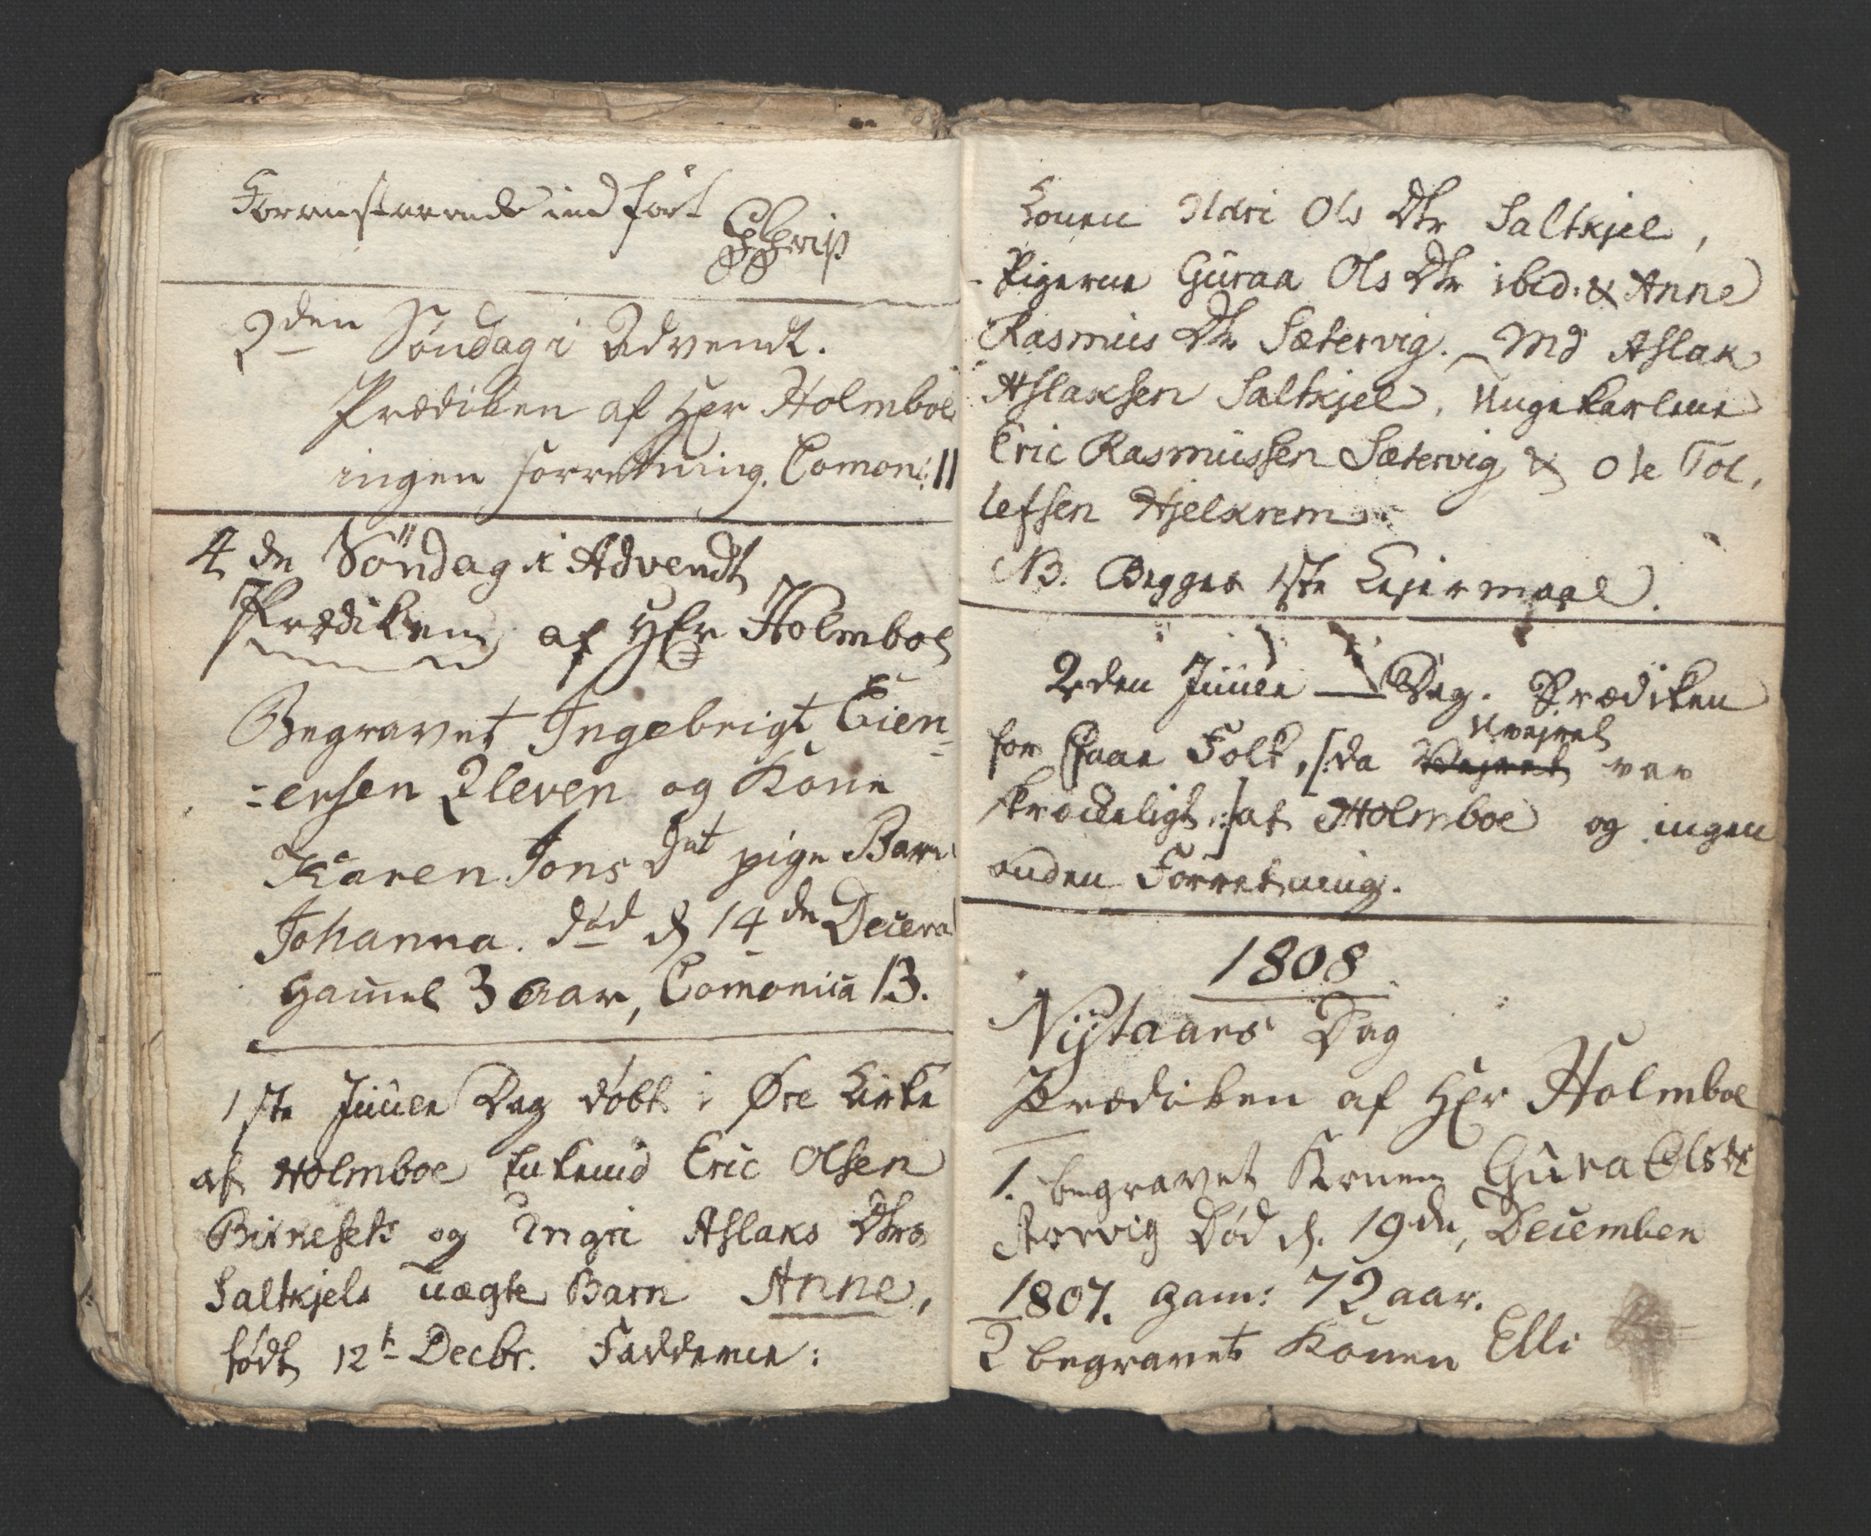 Foranstaaende indført
2den Søndag i Advendt.
Prædiken af Hr Holmboe
ingen forretning. Comon: 11
4de Søndag i Advendt
Prædiken af Hr Holmboe
Begravet Ingebrigt Eien=
=ersen Aleven og Kone
Karen Jons Dat pige Barn
Johanna. død d 14de Decem
Gamel 3 aar, Comonica 13.
1ste Juule Dag døbt i Øre Kirke
af Holmboe Enkemd Eric Olsen
Birkesets og Ingri Aslaks Dtrs
Saltkjels uægte Barn Anne,
født 12t Decbr. Fadderne:
Konen Mari Ols Dtr Saltkjel,
Pigerne Guraa Ols Dtr ibid: & Anne
Rasmus Dtr Sætervig. Md Aslak
Aslaksen Saltkjel, Ungekarlene
Eric Rasmussen Sætervig & Ole Tol,
lefsen Hjelkrem.
NB. Begges 1ste Lejermaal.
2den Juule Dag. Prædiken
Uvejret
for faae Folk, /:da Vejret var
skrækkeligt:/ af Holmboe og ingen
anden Forretning.
1808
Nytaars Dag
Prædiken af Hr Holmboe
1. begravet Konen Gura Ols Dt
Rorvig Død d. 19de, December
1807. gam: 72 aar.
2 begravet Konen Elli